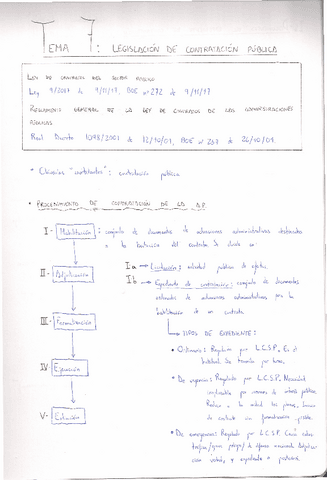 TEMA 7: LEGISLACIÓN DE CONTRATACIÓN PÚBLICA
LEY DE CONTRATOS DEL SECTOR PÚBLICO
Ley 9/2017 de 8/11/17, BOE nº 272 de 9/11/17
REGLAMENTO GENERAL DE LA LEY DE CONTRATOS DE LAS ADMINISTRACIONES
PÚBLICAS
Real Decreto 1098/2001 de 12/10/01, BOE nº 257 de 26/10/01.
• Cláusulas " ": contratación pública
• PROCEDIMIENTO DE CONTRATACIÓN DE LA A.P.
I - Habilitación: conjunto de documentos de actuaciones administrativas destinados
a la licitación del contrato. Se divide en:
II - Adjudicación
Ia → Licitación: pública de ofertas.
Ib → Expediente de contratación: conjunto de documentos
de actuaciones administrativas para la
habilitación de un contrato
III - Formalización
→ TIPOS DE EXPEDIENTE:
• Ordinario: Regulado por L.C.S.P. Es el
habitual. Se tramita por
IV - Ejecución
• De urgencia: Regulado por L.C.S.P. Necesidad
inaplazable por razones de interés público.
Reduce a la mitad los plazos,
de contrato sin formalización previa.
V - Extinción
• De emergencia: Regulado por L.C.S.P.